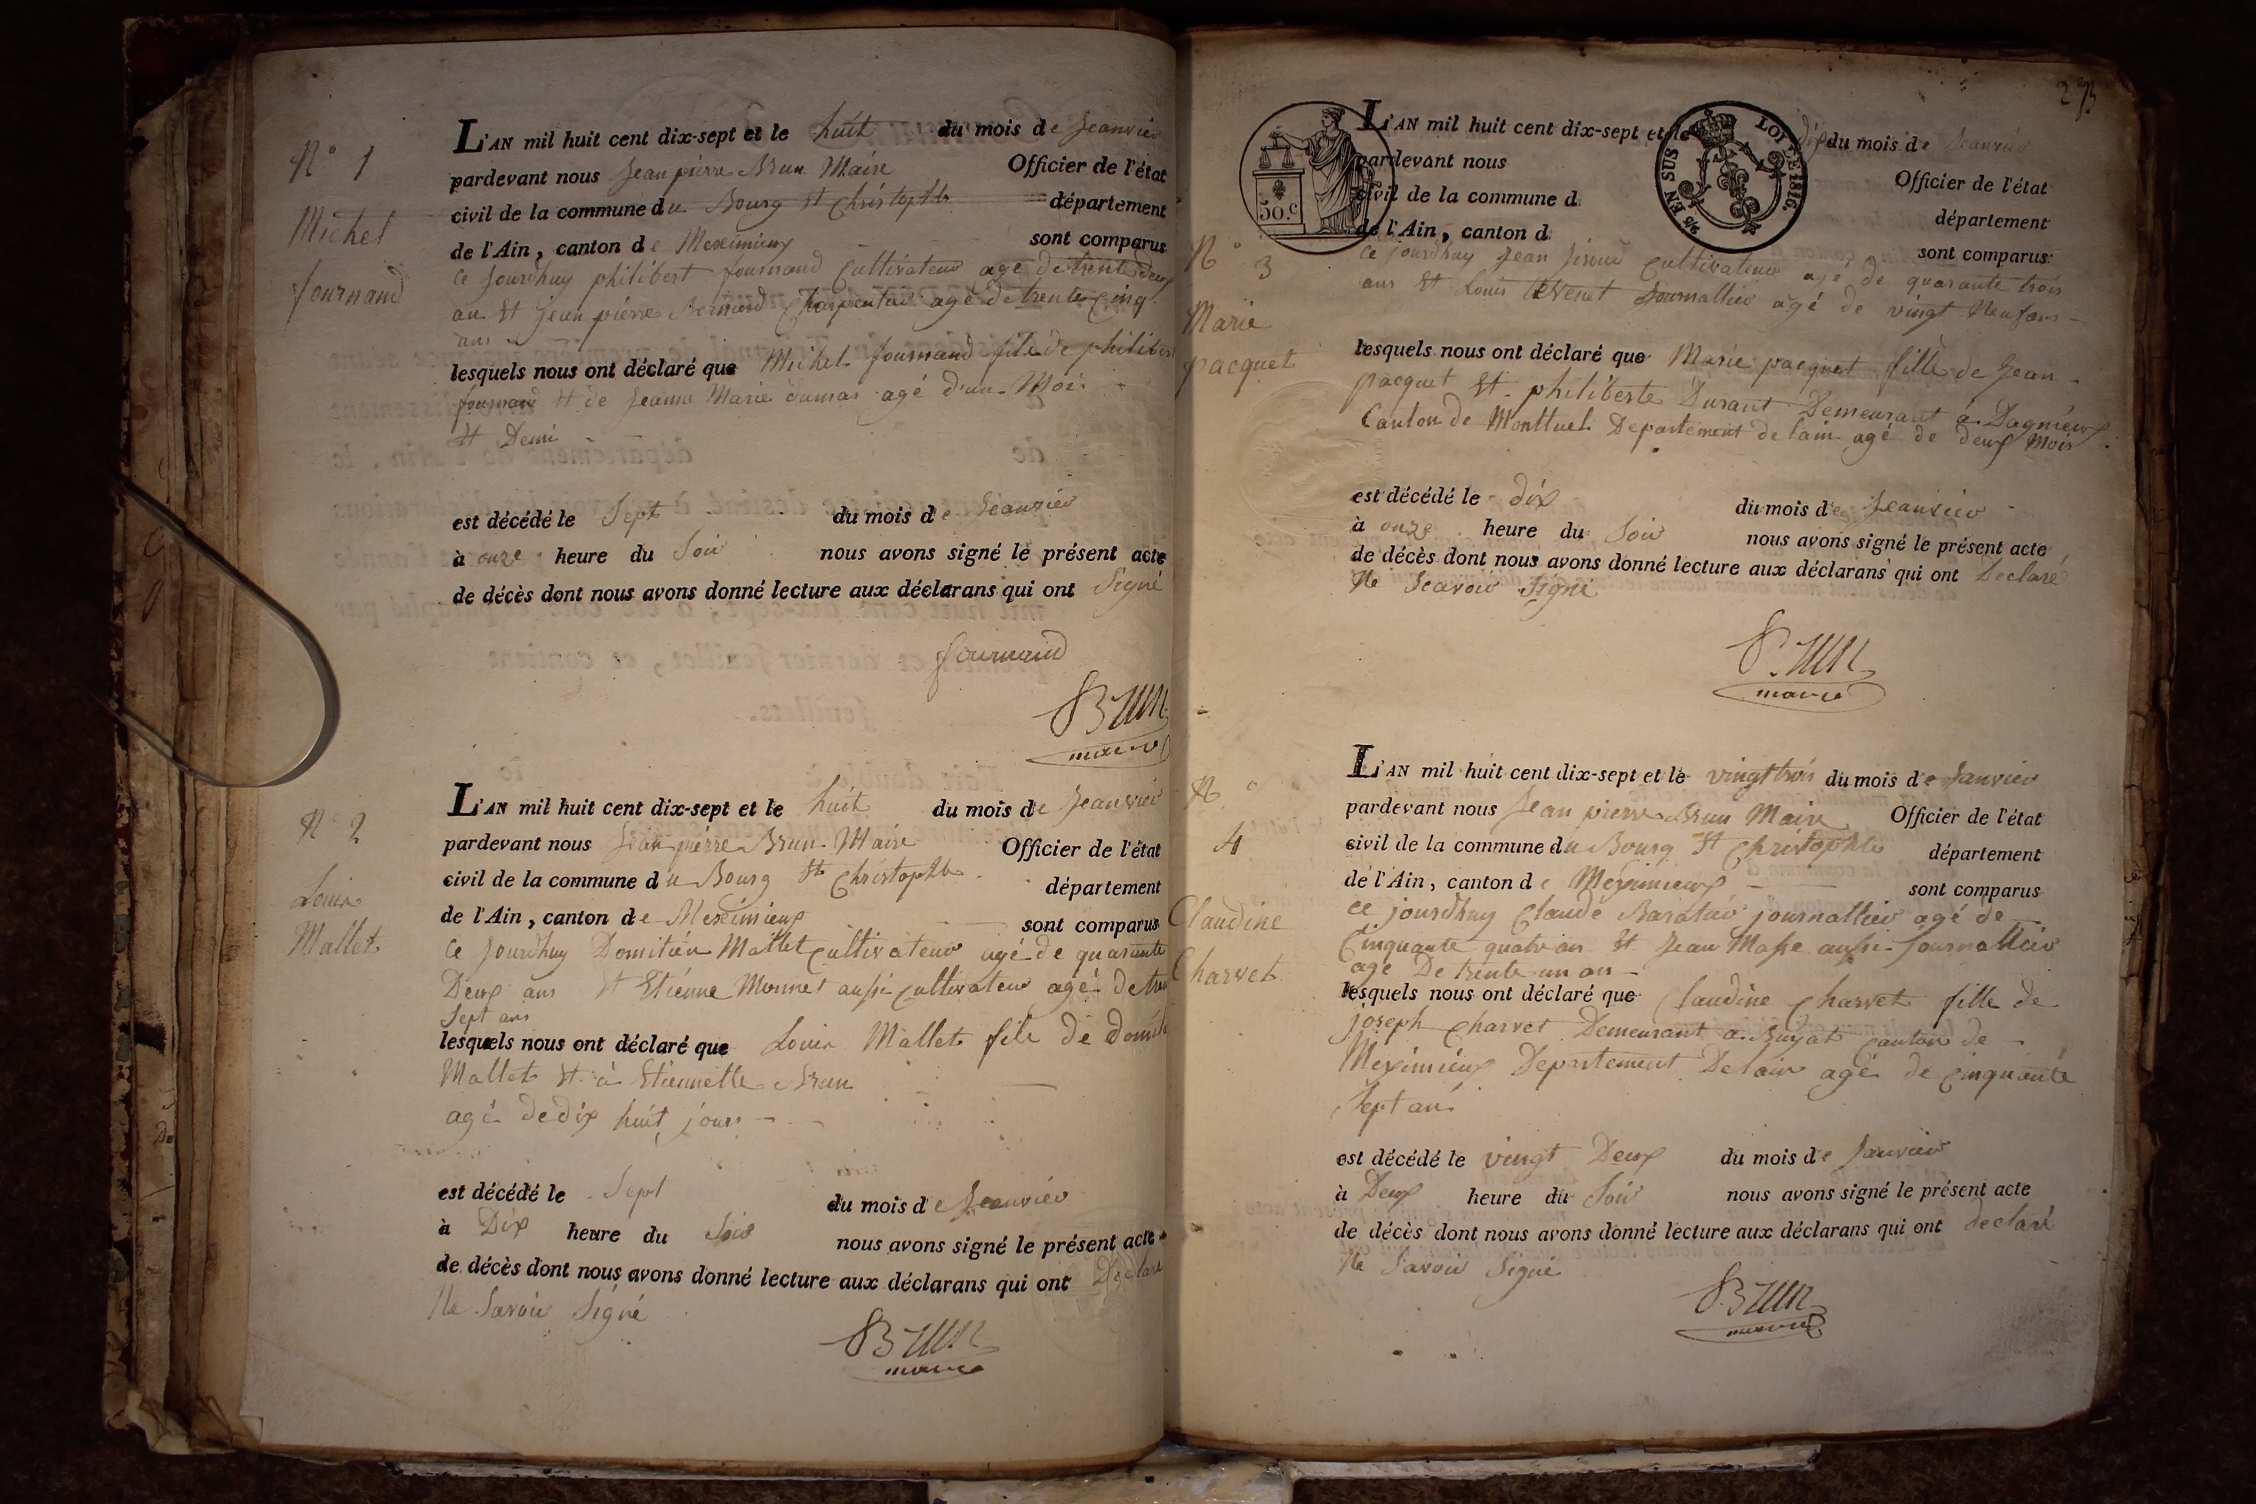 N° 1
Michel
fournand
L'AN mil huit cent dix-sept et le huit du mois de Jeanvier
pardevant nous Jean pierre Brun Maire Officier de l'état
civil de la commune du Bourg St Christophle département
de l'Ain, canton de Meximieux sont comparus
ce jourdhuy philibert fournand Cultivateur agé de trente deux
an Et jean pierre Bernard Charpentier agé de trente cinq
ans
lesquels nous ont déclaré que Michel fournand fils de philibert
fournand Et de Jeanne Marie dumas agé d'un Moi
Et Demi
est décédé le Sept du mois de Jeanvier
à onze heure du Soir nous avons signé le présent acte
de décès dont nous avons donné lecture aux déclarans qui ont Signé
fournand
Brun
maire
N° 2
Louis
Mallet
L'AN mil huit cent dix-sept et le huit du mois de Jeanvier
pardevant nous Jean pierre Brun Maire Officier de l'état
civil de la commune du Bourg St Christophle département
de l'Ain, canton de Meximieux sont comparus
ce jourdhuy Domitien Mallet Cultivateur agé de quarante
Deux ans Et Etienne Monnet aussi Cultivateur agé de
Sept ans
lesquels nous ont déclaré que Louis Mallet fils de
Mallet Et à Etiennette Brun
agé de dix huit jours
est décédé le Sept du mois de Jeanvier
à Dix heure du Soir nous avons signé le présent acte
de décès dont nous avons donné lecture aux déclarans qui ont Declaré
Ne Savoir Signé
Brun
maire
273
50.c
5/6 EN SUS LOI DE 1816.
N° 3
Marie
pacquet
L'AN mil huit cent dix-sept et le dix du mois de Jeanvier
pardevant nous Officier de l'état
civil de la commune d département
de l'Ain, canton d sont comparus
ce jourdhuy Jean Cultivateur agé de quarante trois
ans Et Louis Journallier agé de vingt Neuf ans
lesquels nous ont déclaré que Marie pacquet fille de Jean
pacquet Et philiberte Durant Demeurant à Dagnieux
Canton de Montluel Departement de lain agé de deux Mois
est décédé le dix du mois de Jeanvier
à onze heure du Soir nous avons signé le présent acte
de décès dont nous avons donné lecture aux déclarans qui ont Declaré
Ne Scavoir Signé
Brun
maire
N°
4
Claudine
Charvet
L'AN mil huit cent dix-sept et le vingt trois du mois de Janvier
pardevant nous Jean pierre Brun Maire Officier de l'état
civil de la commune du Bourg St Christophle département
de l'Ain, canton de Meximieux sont comparus
ce jourdhuy Claude journallier agé de
Cinquante quatre an Et Jean Masse aussi journallier
agé De trente un an
lesquels nous ont déclaré que Claudine Charvet fille de
joseph Charvet Demeurant a Canton de
Meximieux Departement Delain agé de cinquante
Sept an
est décédé le vingt Deux du mois de Janvier
à Deux heure du Soir nous avons signé le présent acte
de décès dont nous avons donné lecture aux déclarans qui ont declaré
Ne Savoir Signé
Brun
maire